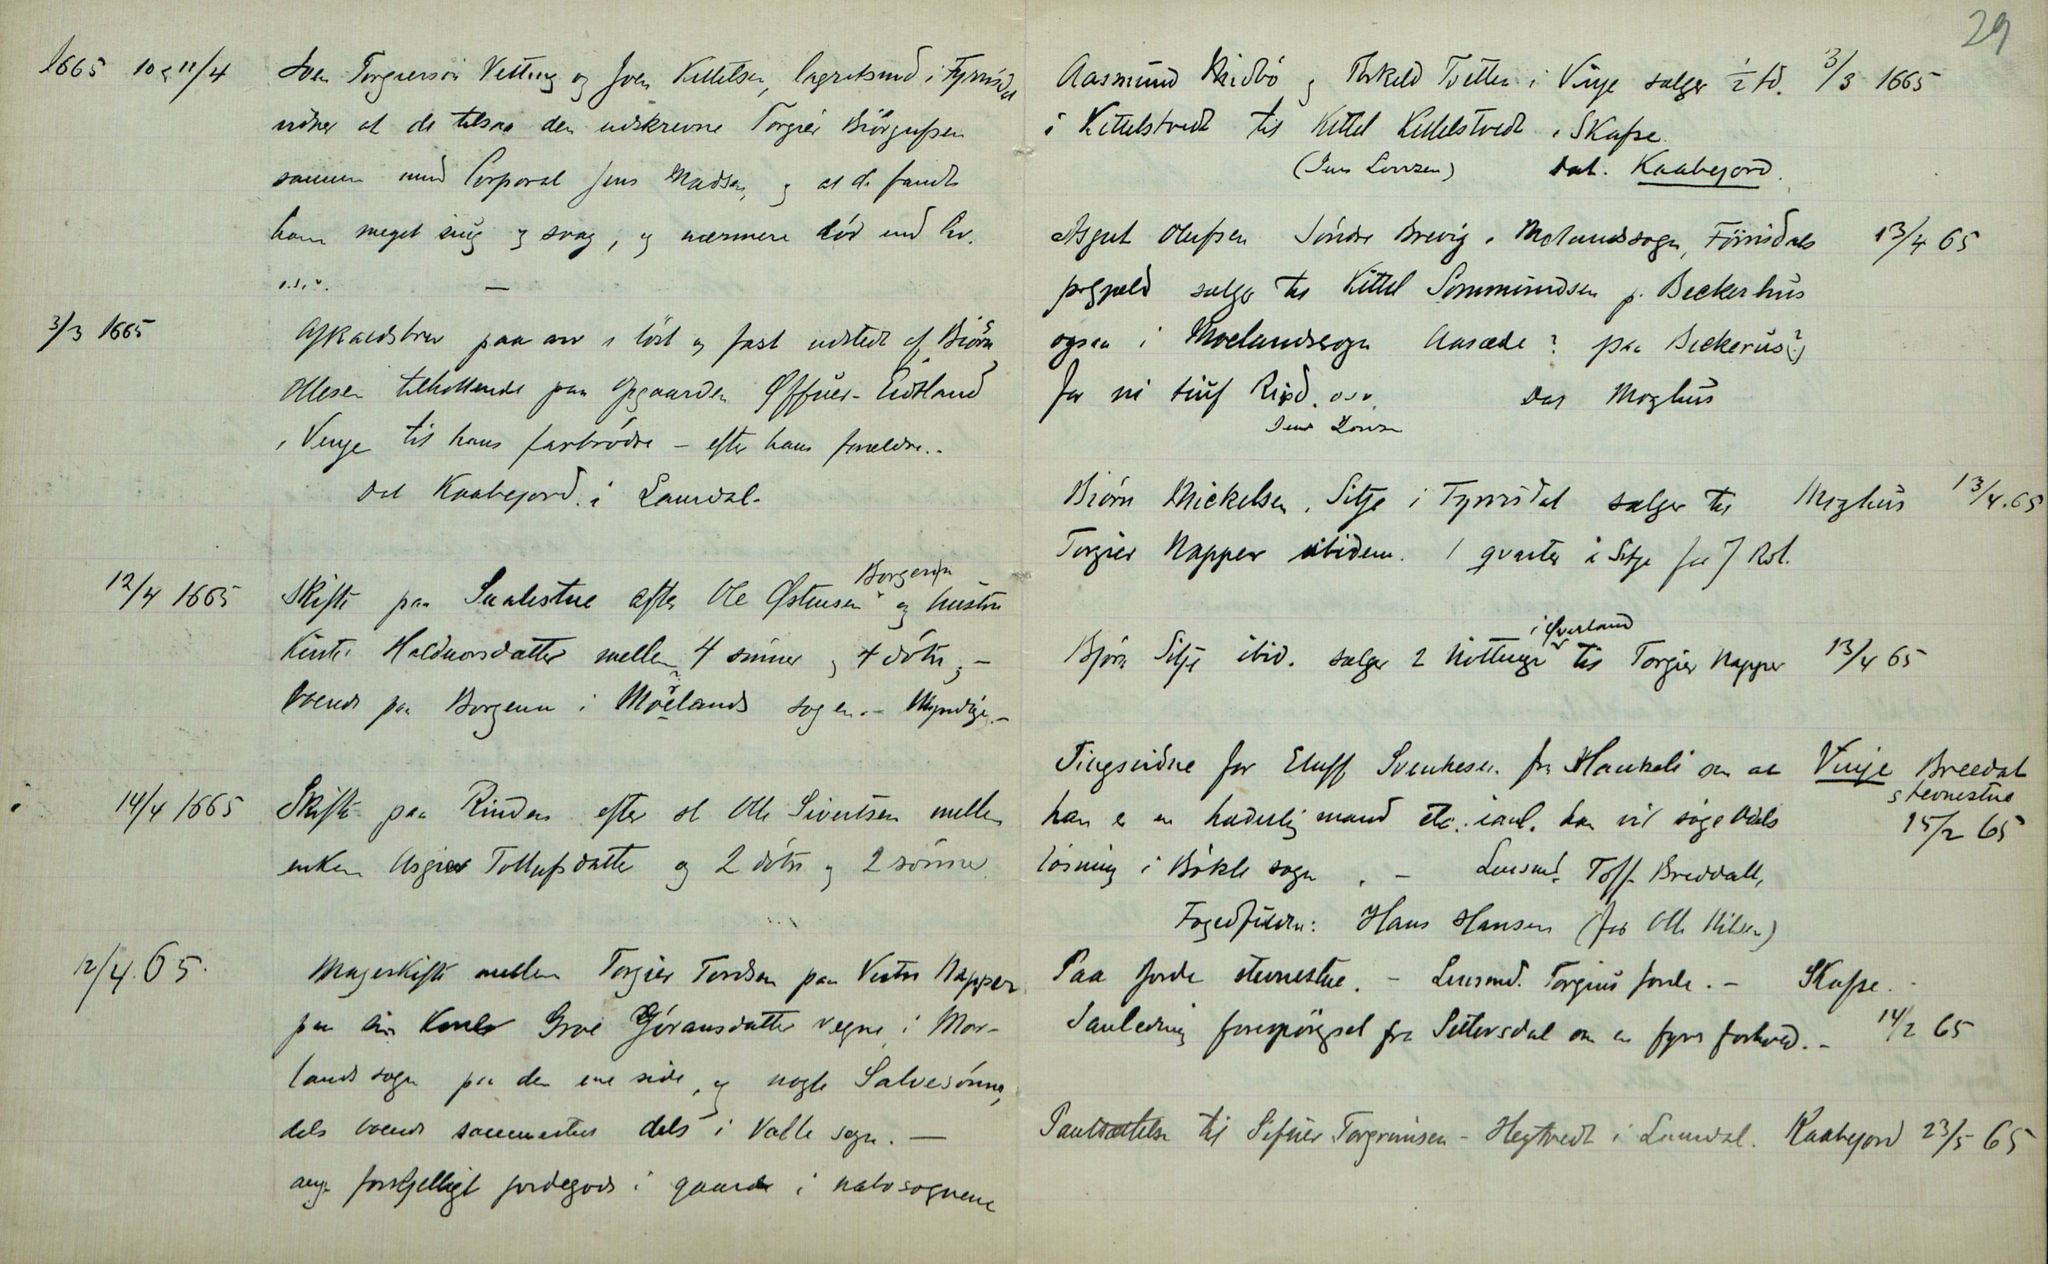 29
1665 10 & 11/4 Sven Torgiersøn Vetting og Joen Kittelsen, lagretsmend i Fyrrisdal
vidner at de tilsaa den udskrevne Torgier Biørgufsen
sammen med Corporal Jens Madsen, og at de fandt
ham meget siug og svag, og nærmere död end liv.
o.s.v. —
3/3 1665 Afkaldsbrev paa arv i löst og fast udstedt af Biörn
Olesen tilholdende paa ødgaarden Øffuer-Eidtland
i Vinje til hans farbrödre — efter hans foreldre..
Dat Kaabejord. i Laurdal.
12/4 1665 Skifte paa Sualestue efter Ole Østensen Borgerøn og hustru
Haldvorsdatter mellem 4 sönner og 4 dötre, —
boende paa Borgenn i Moelands sogen. — Myndige. —
14/4 1665 Skifte paa Rinden efter sl Olle Sivertsen mellem
enken Asgier Tollufsdatter og 2 dötre og 2 sönner.
12/4.65. Mageskifte mellem Torgier Tordsen paa Vestre Napper
paa sin Kones Groe Göransdatter vegne i Moe-
lands sogn paa den ene side, og nogle Salvesönner,
dels boende sammesteds dels i Valle sogn. —
ang. forskjelligt jordegods i gaarde i nabosognene
Aasmund Midbö og Torkeld Tveiten i Vinje sælger 1/2 td. 3/3 1665
i Kittelstvedt til Kittel Kittelstvedt i Skafse
(Jens Lovrsen) Dat. Kaabejord.
Asgut Olufsen Söndre Brevig i Molandssogn, Förrisdals 13/4 65
prgjæld sælger til Kittil Sommundsen p. Beckerhus
ogsaa i Moelandssogn Aasæde? paa Beckerus(?)
for ni tiuf Rixd. o.s.v. Dat Moghus
Jens Lovrsen
Biörn Mickelsen, Silje i Fyrrisdal sælger til Moghus 13/4.65
Torgier Napper ibidem. 1 qvarter i Silje for 7 Rdl.
Björn Silje ibid. sælger 2 Nittinger i Qverland til Torgier Napper 13/4 65
Tingsvidne for Eluff Svenkesen fra Haukeli om at Vinje Breedal
stevnestue
han er en hæderlig mand etc. ianl. han vil söge odels 15/2 65
lösning i Bökle sogn. — Lensmd. Toff Breddall,
Fogedfuldm: Hans Hansen (for Olle Nilsen)
Paa fjorde stevnestue. — Lensmd. Torgius fjorde. — Skafse.
I anledning forespörgsel fra Setersdal om en fyrs forhold. — 14/2 65
Pantsættelse til Sifuer Torgrimsen — Hegtvedt i Laurdal. Kaabejord 23/5 65